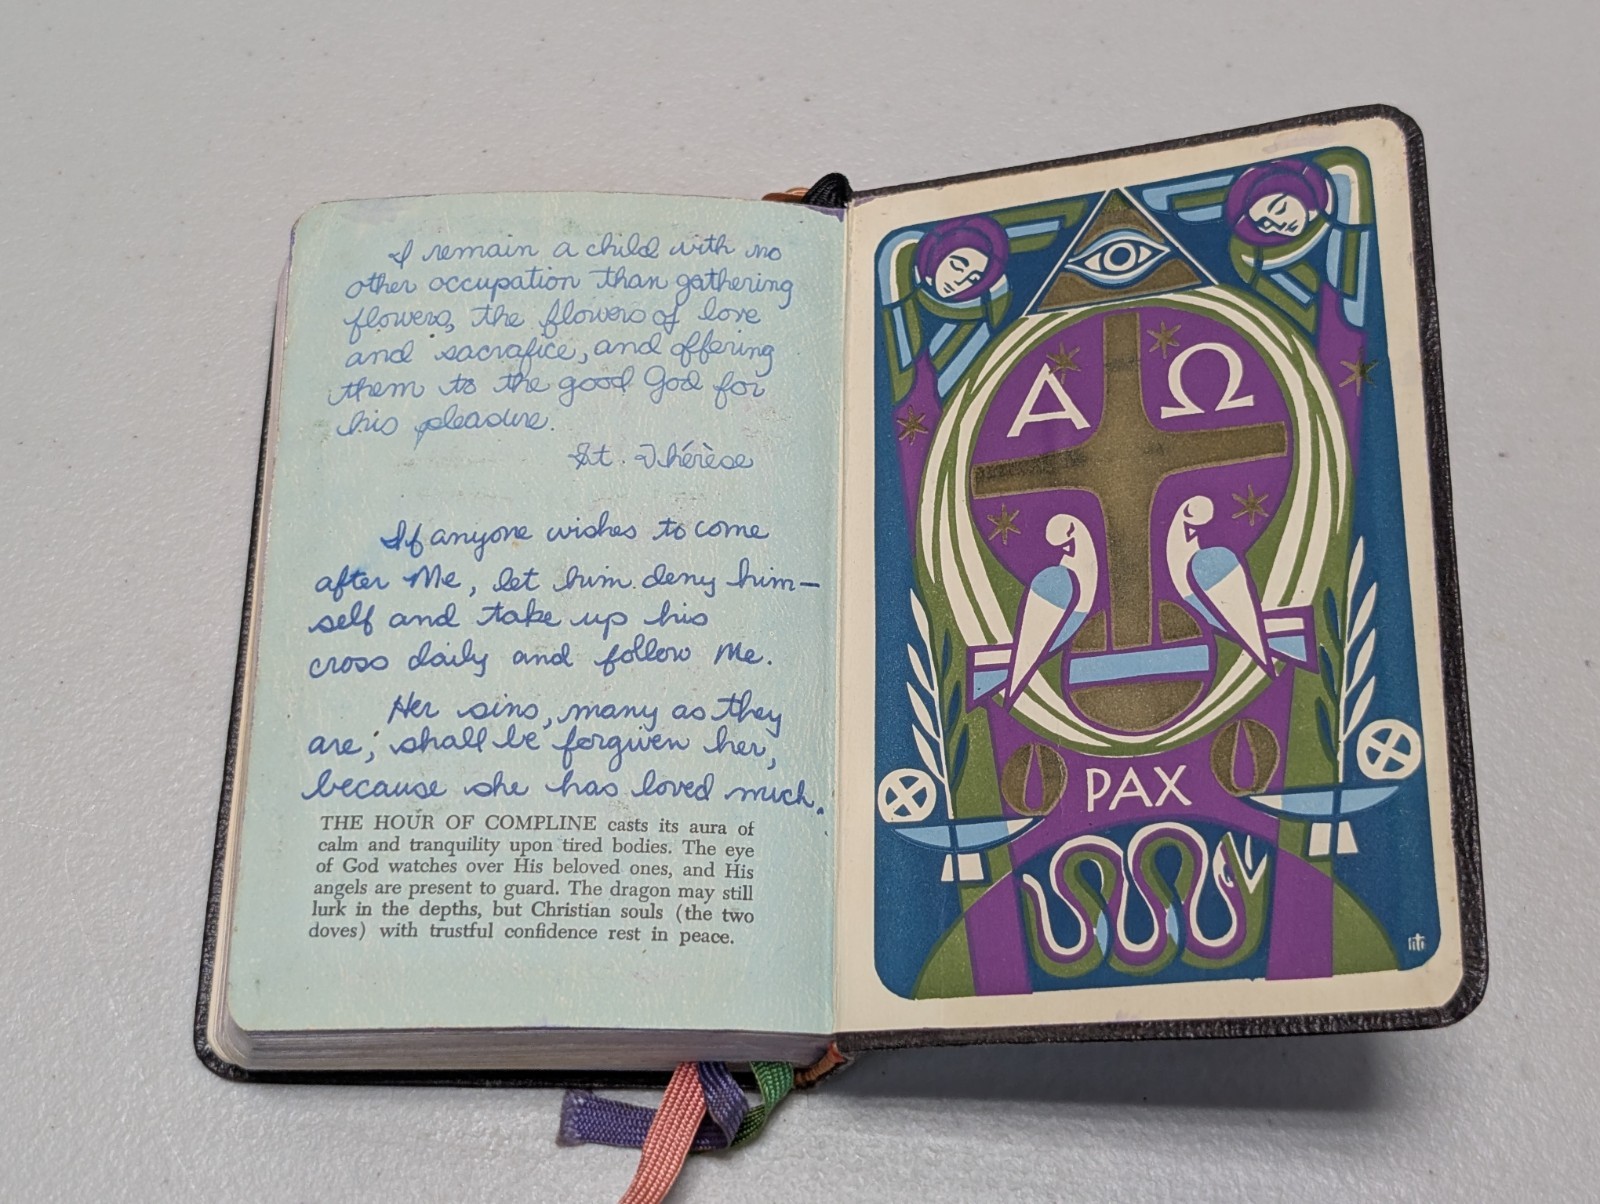 I remain a child with no
other occupation than gathering
flowers, the flowers of love
and sacrafice, and offering
them to the good God for
his pleasure.
St. Thérèse
If anyone wishes to come
after Me, let him deny him-
self and take up his
cross daily and follow Me.
Her sins, many as they
are, shall be forgiven her,
because she has loved much.
THE HOUR OF COMPLINE casts its aura of
calm and tranquility upon tired bodies. The eye
of God watches over His beloved ones, and His
angels are present to guard. The dragon may still
lurk in the depths, but Christian souls (the two
doves) with trustful confidence rest in peace.
Α Ω
PAX